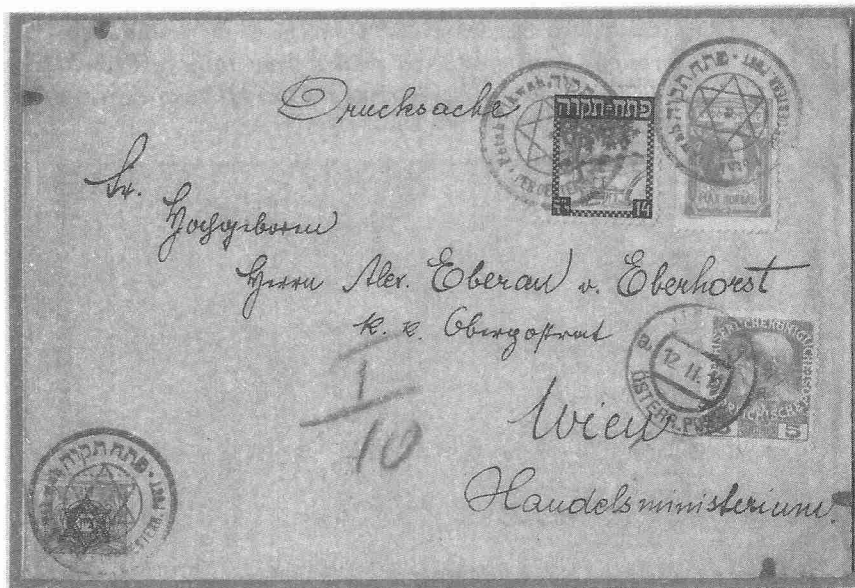 Drucksache
פתח-תקוה
14
MAX NORDAU
Sr.
Hochgeboren
Herrn Alex. Eberan v. Eberhorst
k. k. Oberpostrat
12 II
ÖSTERR. PO
5
I
10
Wien
Handelsministerium.
פתח תקוה